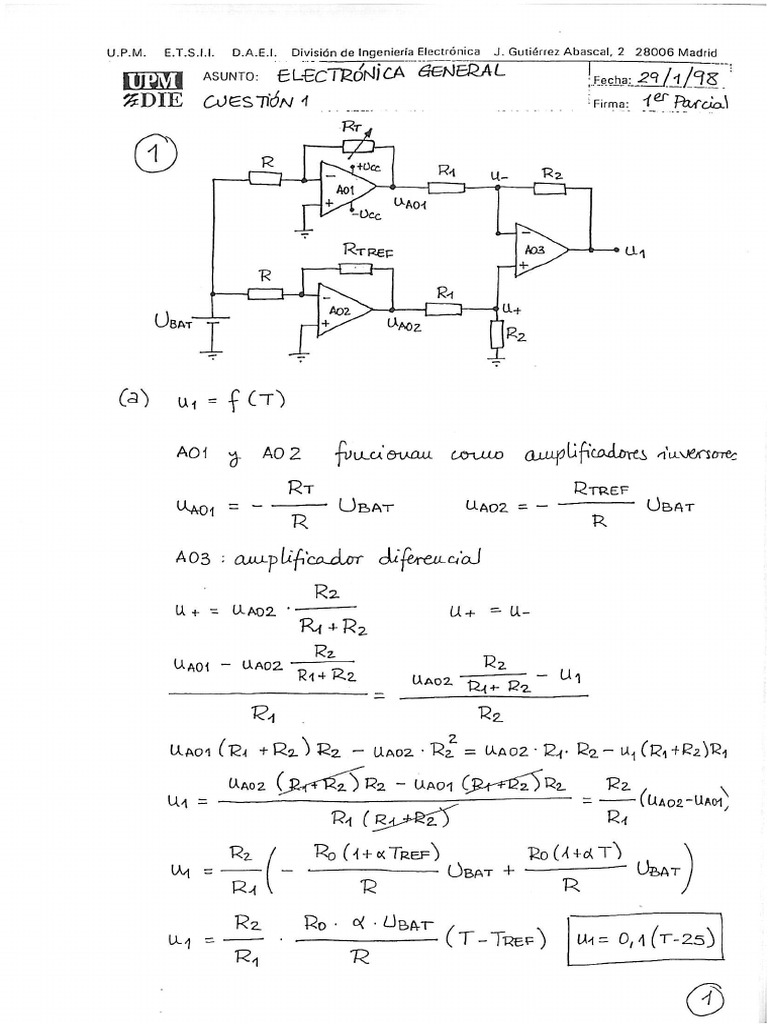 U.P.M. E.T.S.I.I. D.A.E.I. División de Ingeniería Electrónica J. Gutiérrez Abascal, 2 28006 Madrid
UPM ASUNTO: ELECTRÓNICA GENERAL Fecha: 29/1/98
DIE CUESTIÓN 1 Firma: 1er Parcial
1
RT
R +UCC R1 U- R2
A01
UA01
-UCC
RTREF A03 U1
R R1 U+
A02
UBAT UA02 R2
(a) u1 = f(T)
A01 y A02 funcionan como amplificadores inversores
uA01 = - RT/R UBAT uA02 = - RTREF/R UBAT
A03 : amplificador diferencial
u+ = uA02 · R2/(R1+R2) u+ = u-
(uA01 - uA02 R2/(R1+R2))/R1 = (uA02 R2/(R1+R2) - u1)/R2
uA01 (R1+R2) R2 - uA02 · R2² = uA02 · R1 · R2 - u1 (R1+R2) R1
u1 = (uA02 (R1+R2) R2 - uA01 (R1+R2) R2)/(R1 (R1+R2)) = R2/R1 (uA02-uA01)
u1 = R2/R1 (- R0 (1+αTREF)/R UBAT + R0 (1+αT)/R UBAT)
u1 = R2/R1 · R0 · α · UBAT/R (T-TREF) u1 = 0,1 (T-25)
1